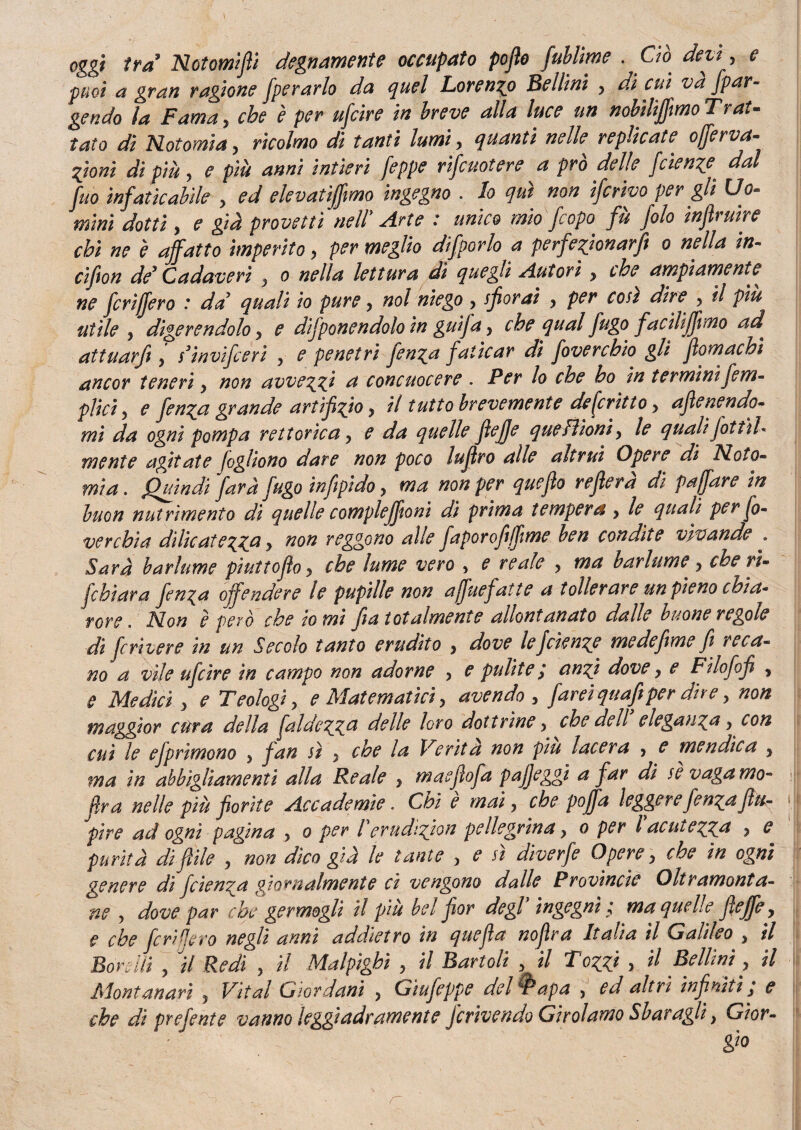 oggi tra' Notomiſti degnamente occupato poſto ſublime . Ciò devi, e
puoi a gran ragione ſperarlo da quel Lorenzo Bellini , di cui và ſpar-
gendo la Fama, che è per uſcire in breve alla luce un nobiliſſimo Trat-
tato di Notomia, ricolmo di tanti lumi, quanti nelle replicate oſſerva-
zioni di più, e più anni intieri ſeppe riſcuotere a prò delle ſcienze dal
ſuo infaticabile , ed elevatiſſimo ingegno . Io quì non iſcrivo per gli Uo-
mini dotti, e già provetti nell' Arte : unico mio ſcopo fù ſolo inſtruire
chi ne è affatto imperito, per meglio diſporlo a perfezionarſi o nella in-
ciſion de' Cadaveri , o nella lettura di quegli Autori , che ampiamente
ne ſcriſſero : da' quali io pure, nol niego , sfiorai , per così dire , il più
utile , digerendolo, e diſponendolo in guiſa, che qual ſugo faciliſſimo ad
attuarſi , s'inviſceri , e penetri ſenza faticar di ſoverchio gli ſtomachi
ancor teneri, non avvezzi a concuocere . Per lo che ho in termini ſem-
plici, e ſenza grande artifizio, il tutto brevemente deſcritto, aſtenendo-
mi da ogni pompa rettorica, e da quelle ſteſſe queſtioni, le quali ſottil-
mente agitate ſogliono dare non poco luſtro alle altrui Opere di Noto-
mia . Quindi ſarà ſugo inſipido, ma non per queſto reſterà di paſſare in
buon nutrimento di quelle compleſſioni di prima tempera , le quali per ſo-
verchia dilicatezza, non reggono alle ſaporoſiſſime ben condite vivande .
Sarà barlume piuttoſto, che lume vero , e reale , ma barlume, che ri-
ſchiara ſenza offendere le pupille non aſſuefatte a tollerare un pieno chia-
rore . Non è però che io mi ſia totalmente allontanato dalle buone regole
di ſcrivere in un Secolo tanto erudito , dove le ſcienze medeſime ſi reca-
no a vile uſcire in campo non adorne , e pulite; anzi dove, e Filoſofi ,
e Medici , e Teologi, e Matematici, avendo , ſarei quaſi per dire, non
maggior cura della ſaldezza delle loro dottrine, che dell' eleganza, con
cui le eſprimono , fan sì , che la Verità non più lacera , e mendica ,
ma in abbigliamenti alla Reale , maeſtoſa paſſeggi a far di sè vaga mo-
ſtra nelle più fiorite Accademie . Chi è mai, che poſſa leggere ſenza ſtu-
pire ad ogni pagina , o per l'erudizion pellegrina, o per l'acutezza , e
purità di ſtile , non dico già le tante , e sì diverſe Opere, che in ogni
genere di ſcienza giornalmente ci vengono dalle Provincie Oltramonta-
ne , dove par che germogli il più bel fior degl' ingegni; ma quelle ſteſſe,
e che ſcriſſero negli anni addietro in queſta noſtra Italia il Galileo , il
Borelli , il Redi , il Malpighi , il Bartoli , il Tozzi , il Bellini , il
Montanari , Vital Giordani , Giuſeppe del Papa , ed altri infiniti; e
che di preſente vanno leggiadramente ſcrivendo Girolamo Sbaragli, Gior-
gio